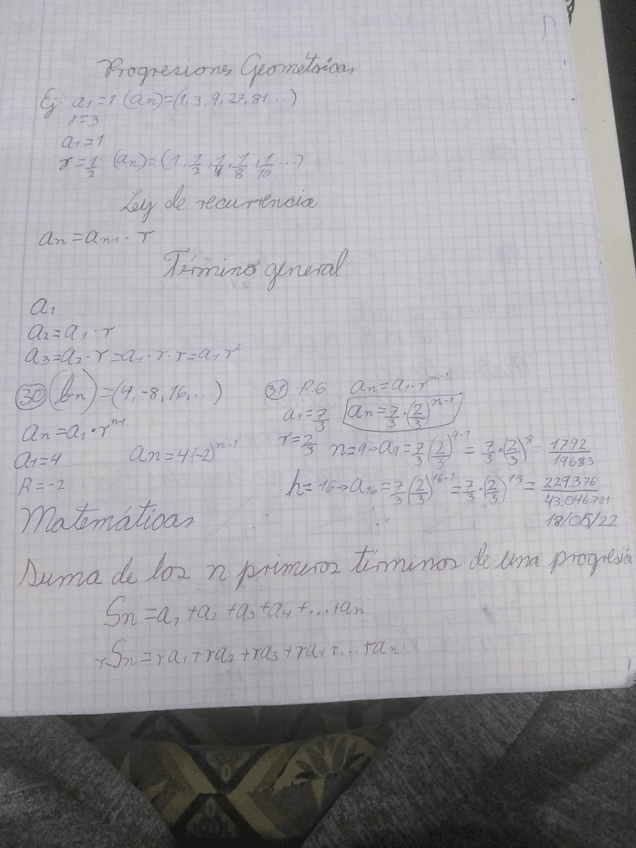 Progresiones Geométricas
Ej: a₁=1 (an)=(1,3,9,27,81,...)
r=3
a₁=1
r=1/2 (an)=(1, 1/2, 1/4, 1/8, 1/10 ...)
Ley de recurrencia
an=an-1 · r
Término general
a₁
a₂=a₁·r
a₃=a₂·r=a₁·r·r=a₁r²
30 (bn)=(4,-8,16,...)
an=a₁·rⁿ⁻¹
a₁=4 an=4·(-2)ⁿ⁻¹
R=-2
31 P.G an=a₁·rⁿ⁻¹
a₁=7/3 an=7/3·(2/3)ⁿ⁻¹
r=2/3 n=9→a₉=7/3(2/3)⁹⁻¹=7/3·(2/3)⁸=1792/19683
n=16→a₁₆=7/3(2/3)¹⁶⁻¹=7/3·(2/3)¹⁵=229.376/43.046.721
Matemáticas 18/05/22
Suma de los n primeros términos de una progresió
Sn=a₁+a₂+a₃+a₄+...+an
rSn=ra₁+ra₂+ra₃+ra₄+...ran